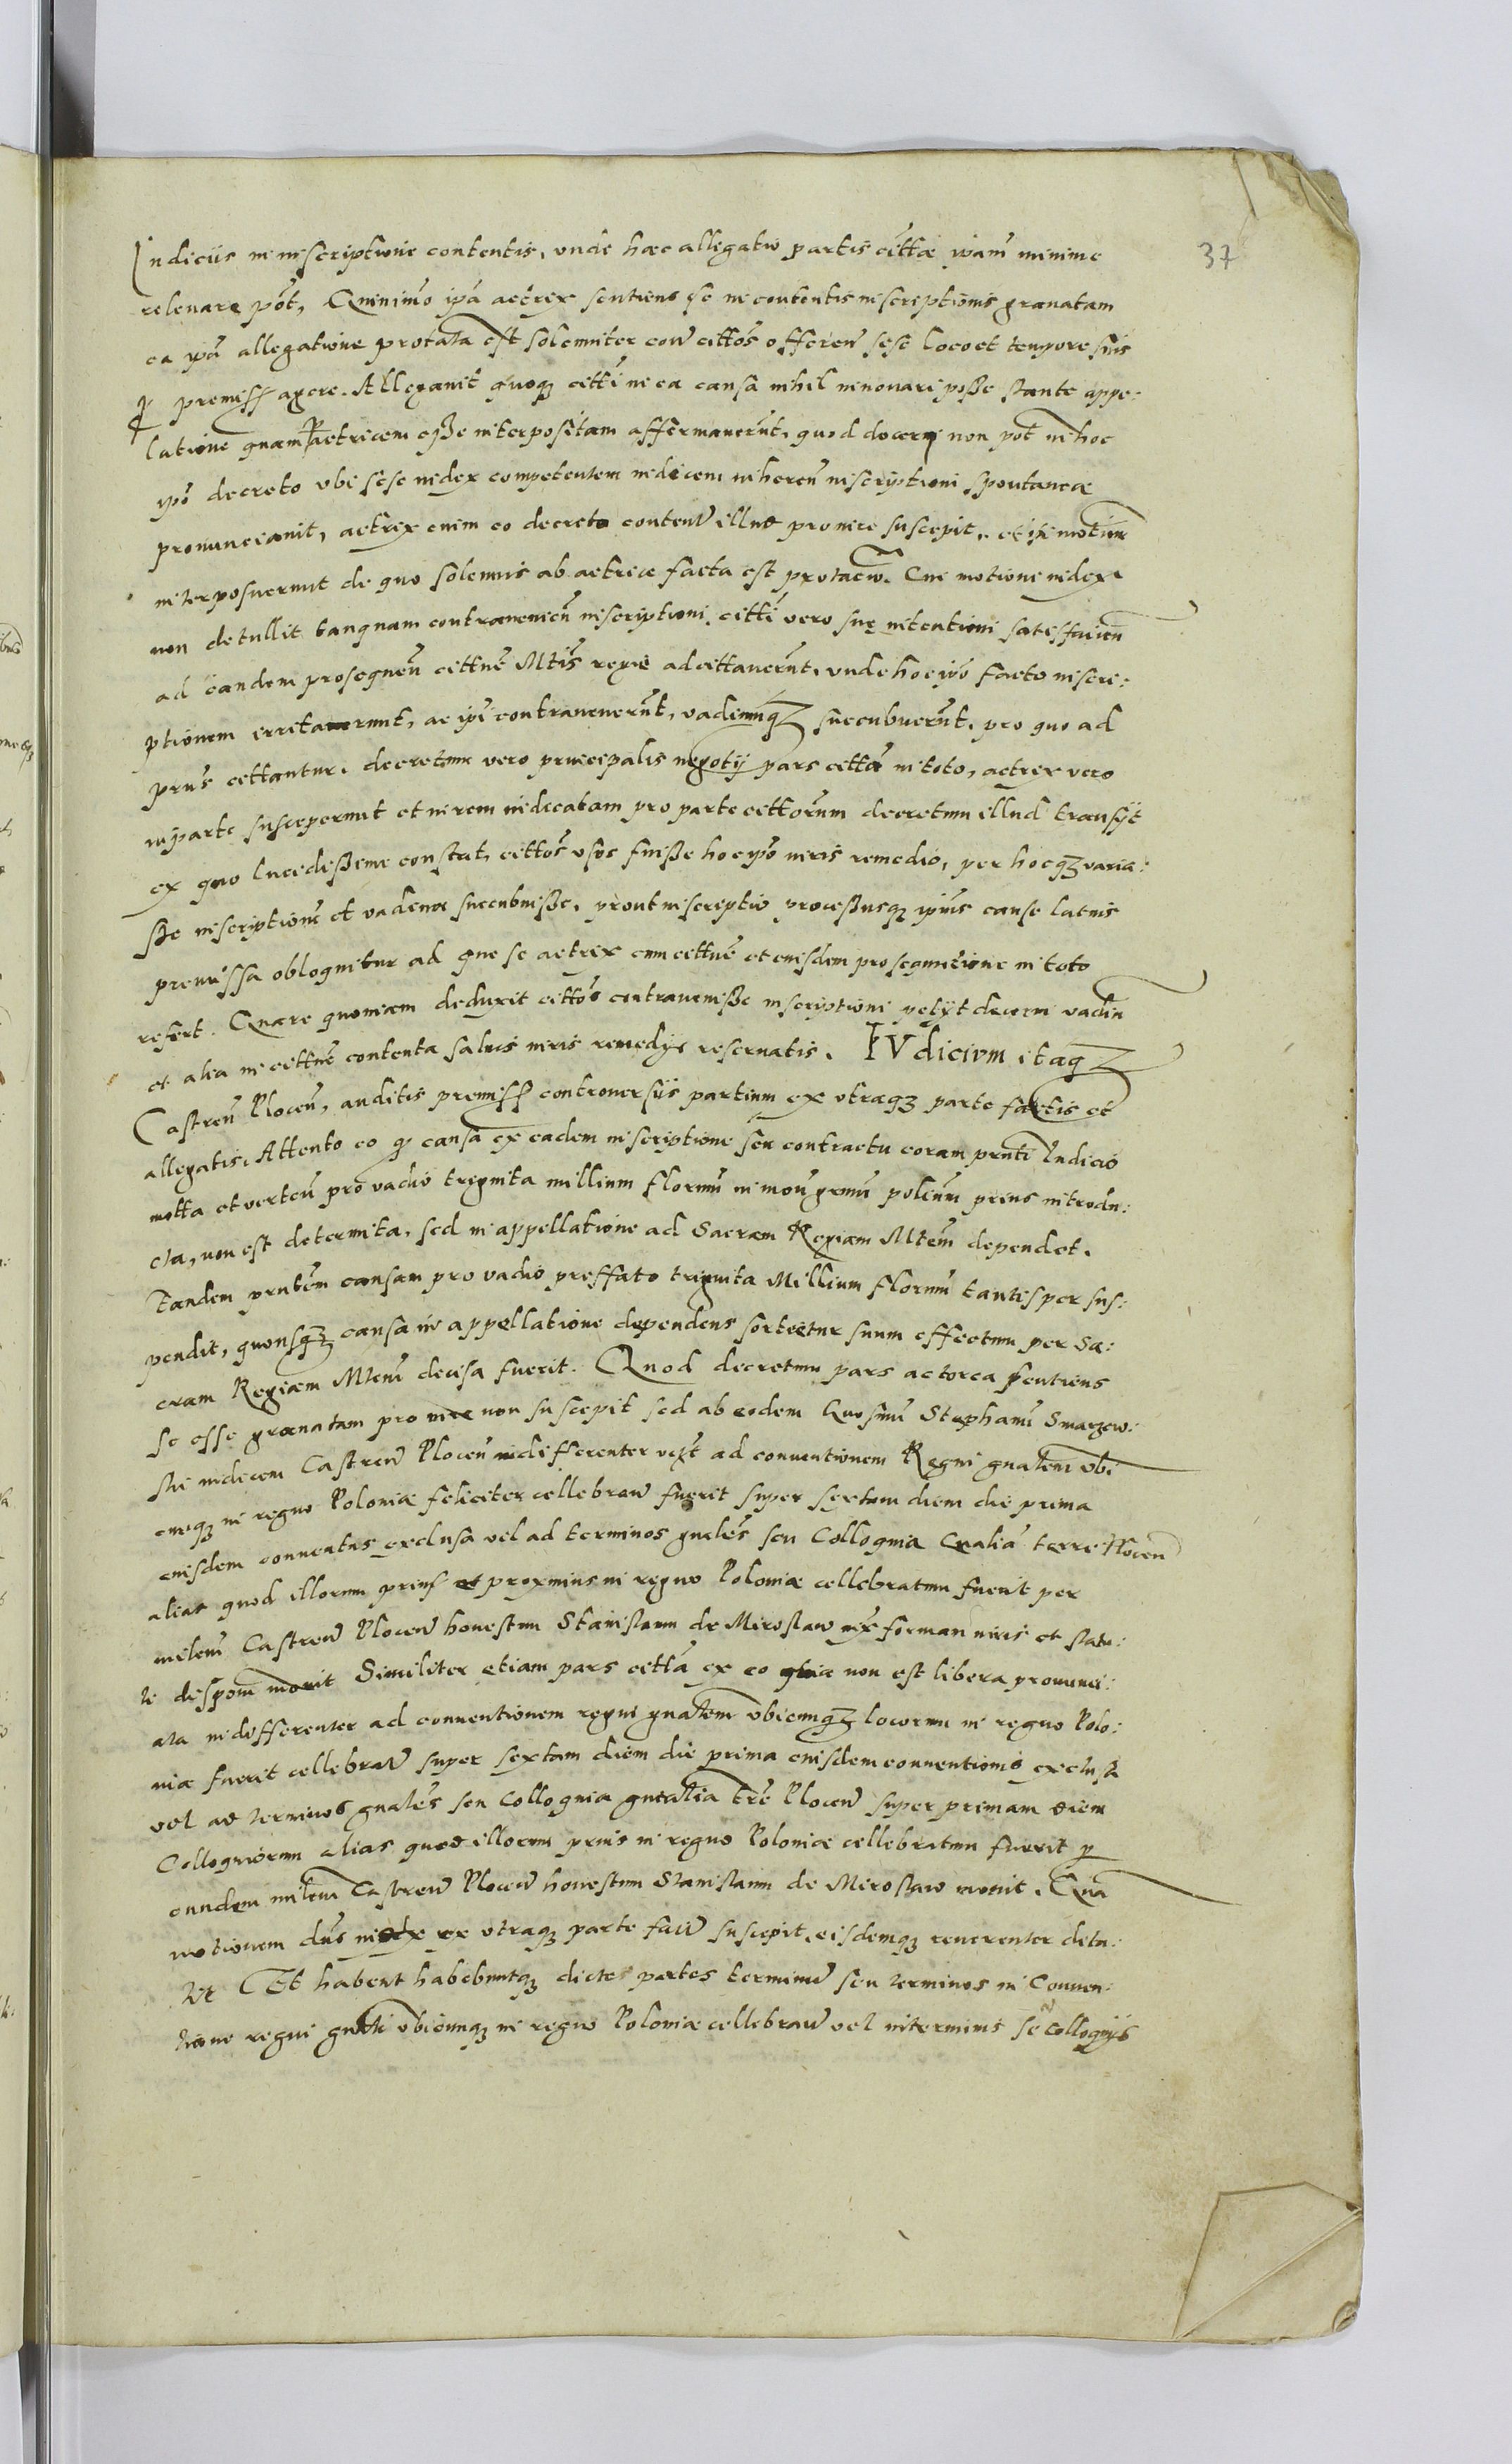 37
Indiciis in inscriptione contentis, vnde hæc allegatio partis cittæ ipam minime
releuare pot, Quinimo ipa actrix sentiens se in contentis inscriptionis grauatam
ea ipa allegatione protata est solemniter con cittos offeren sese loco et tempore suis
p premiss agere. Allegauit quoq citti in ea causa nihil innouari posse stante appe:
latione quam p actricem esse interpositam affermauerunt, quod doceri non pot in hoc
ipo decreto vbi sese iudex competentem iudicem inheren inscriptioni spontaneæ
pronunciauit, actrix enim eo decreto conten illud pro iure suscepit, et motione
interposuerunt de quo solemnis ab actrice facta est protacio. Cui motione iudex
non detullit tanquam contrauenien inscriptioni, citti vero suę intentioni satisfacien
ad eandem prosequen cittne Mtis regie adcittauerunt, vnde hoc ipo facto inscri:
ptionem irritauerunt, ac ipi contrauenerunt, vadiumq succubuerunt, pro quo ad
prns cittantur. decretum vero principalis negotij pars citta in toto, actrix vero
in parte susceperunt et in rem iudicatam pro parte cittorum decretum illud transijt
ex quo lucidissime constat, cittos vsos fuisse hoc ipo iuris remedio, per hocq varia:
sse inscriptione et vadium succubuisse, prout inscriptio processusq ipius cause latius
premissa obloquitur ad que se actrix cum cittne et eiusdem prosequutione in toto
refert. Quare quoniam deduxit cittos contrauenisse inscriptioni petijt decerni vadiu
et alia in cittne contenta saluis iuris remedijs reseruatis. IVdicivm itaq
Castren Plocen, auditis premiss controuersijs partium ex vtraq parte factis et
allegatis. Attento eo q causa ex eadem inscriptione seu contractu coram prnti Iudicio
motta et verten pro vadio triginta millium florenu in mon grmu polium prius introdu:
cta, non est determita, sed in appellatione ad Sacram Regiam Mtem dependet.
Tandem prntem causam pro vadio preffato triginta Millium florenu tantisper sus:
pendit, quousq causa in appellatione dependens sortietur suum effectum per Sa:
cram Regiam Mtem decisa fuerit. Quod decretum pars actorea sentiens
se esse grauatam pro iure non suscepit sed ab eodem Gnosmu Stephanu Smarzew:
ski iudicem Castren Plocen indifferenter ad conuentionem Regni gnalem vbi
cunq in regno Poloniæ feliciter cellebran fuerit super sextam diem die prima
eiusdem conuentus exclusa vel ad terminos gnales seu Colloquia Gnalia terre Plocen
alias quod illorum prius et proximius in regno Poloniæ cellebratum fuerit per
milem Castren Plocen honestum Stanislaum de Miroslaw formam iuris et statu:
ti dispom mouit Similiter etiam pars citta ex eo quia non est libera pronunci:
ata indifferenter ad conuentionem regni gnalem vbicunq locorum in regno Polo:
niæ fuerit cellebran super sextam diem die prima eiusdem conuentionis exclusa
vel ad terminos gnales seu Colloquia gnralia tre Plocen super primam diem
Colloquiorum alias quod illorum prius in regno Poloniæ cellebratum fuerit p
eundem milem Castren Plocen honestum Stanislaum de Miroslaw mouit. Qua
motionem dns iudex ex vtraq parte facin suscepit, eisdemq reuerenter detu:
lit Et habent habebuntq dictes partes terminu seu terminos in Conuen:
tione regni gnali vbicunq in regno Poloniæ cellebran vel in terminis seu Colloquijs